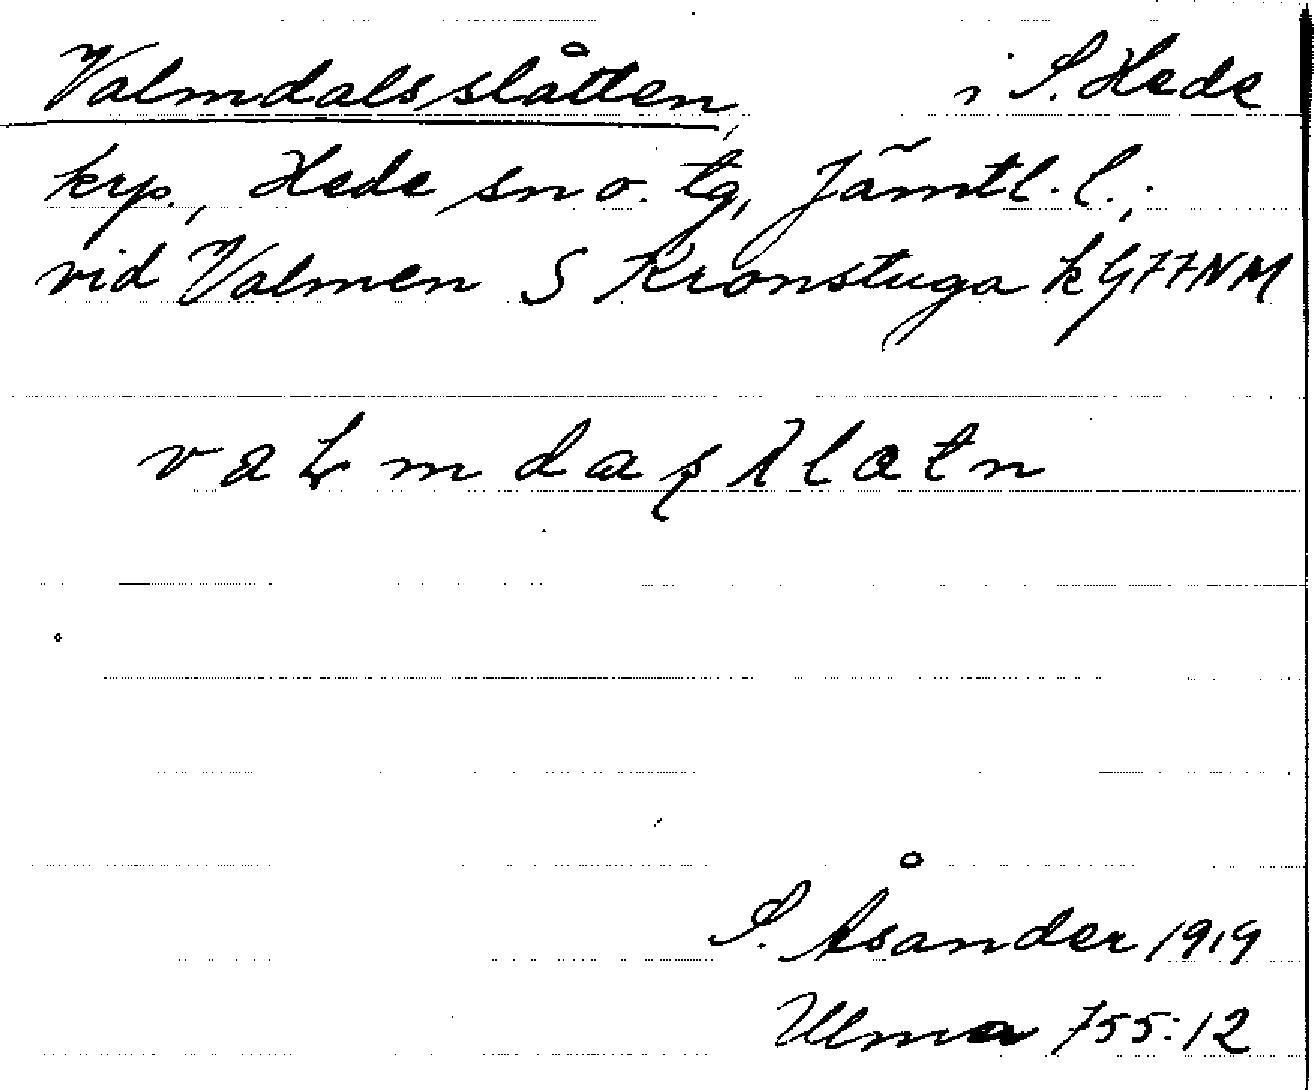 Valmdalsslåtten, i S. Hede
krp., Hede sn o. tg, Jämtl. l.;
vid Valmen S Kronstuga k G77NM
S. Åsander 1919
Ulma 755:12